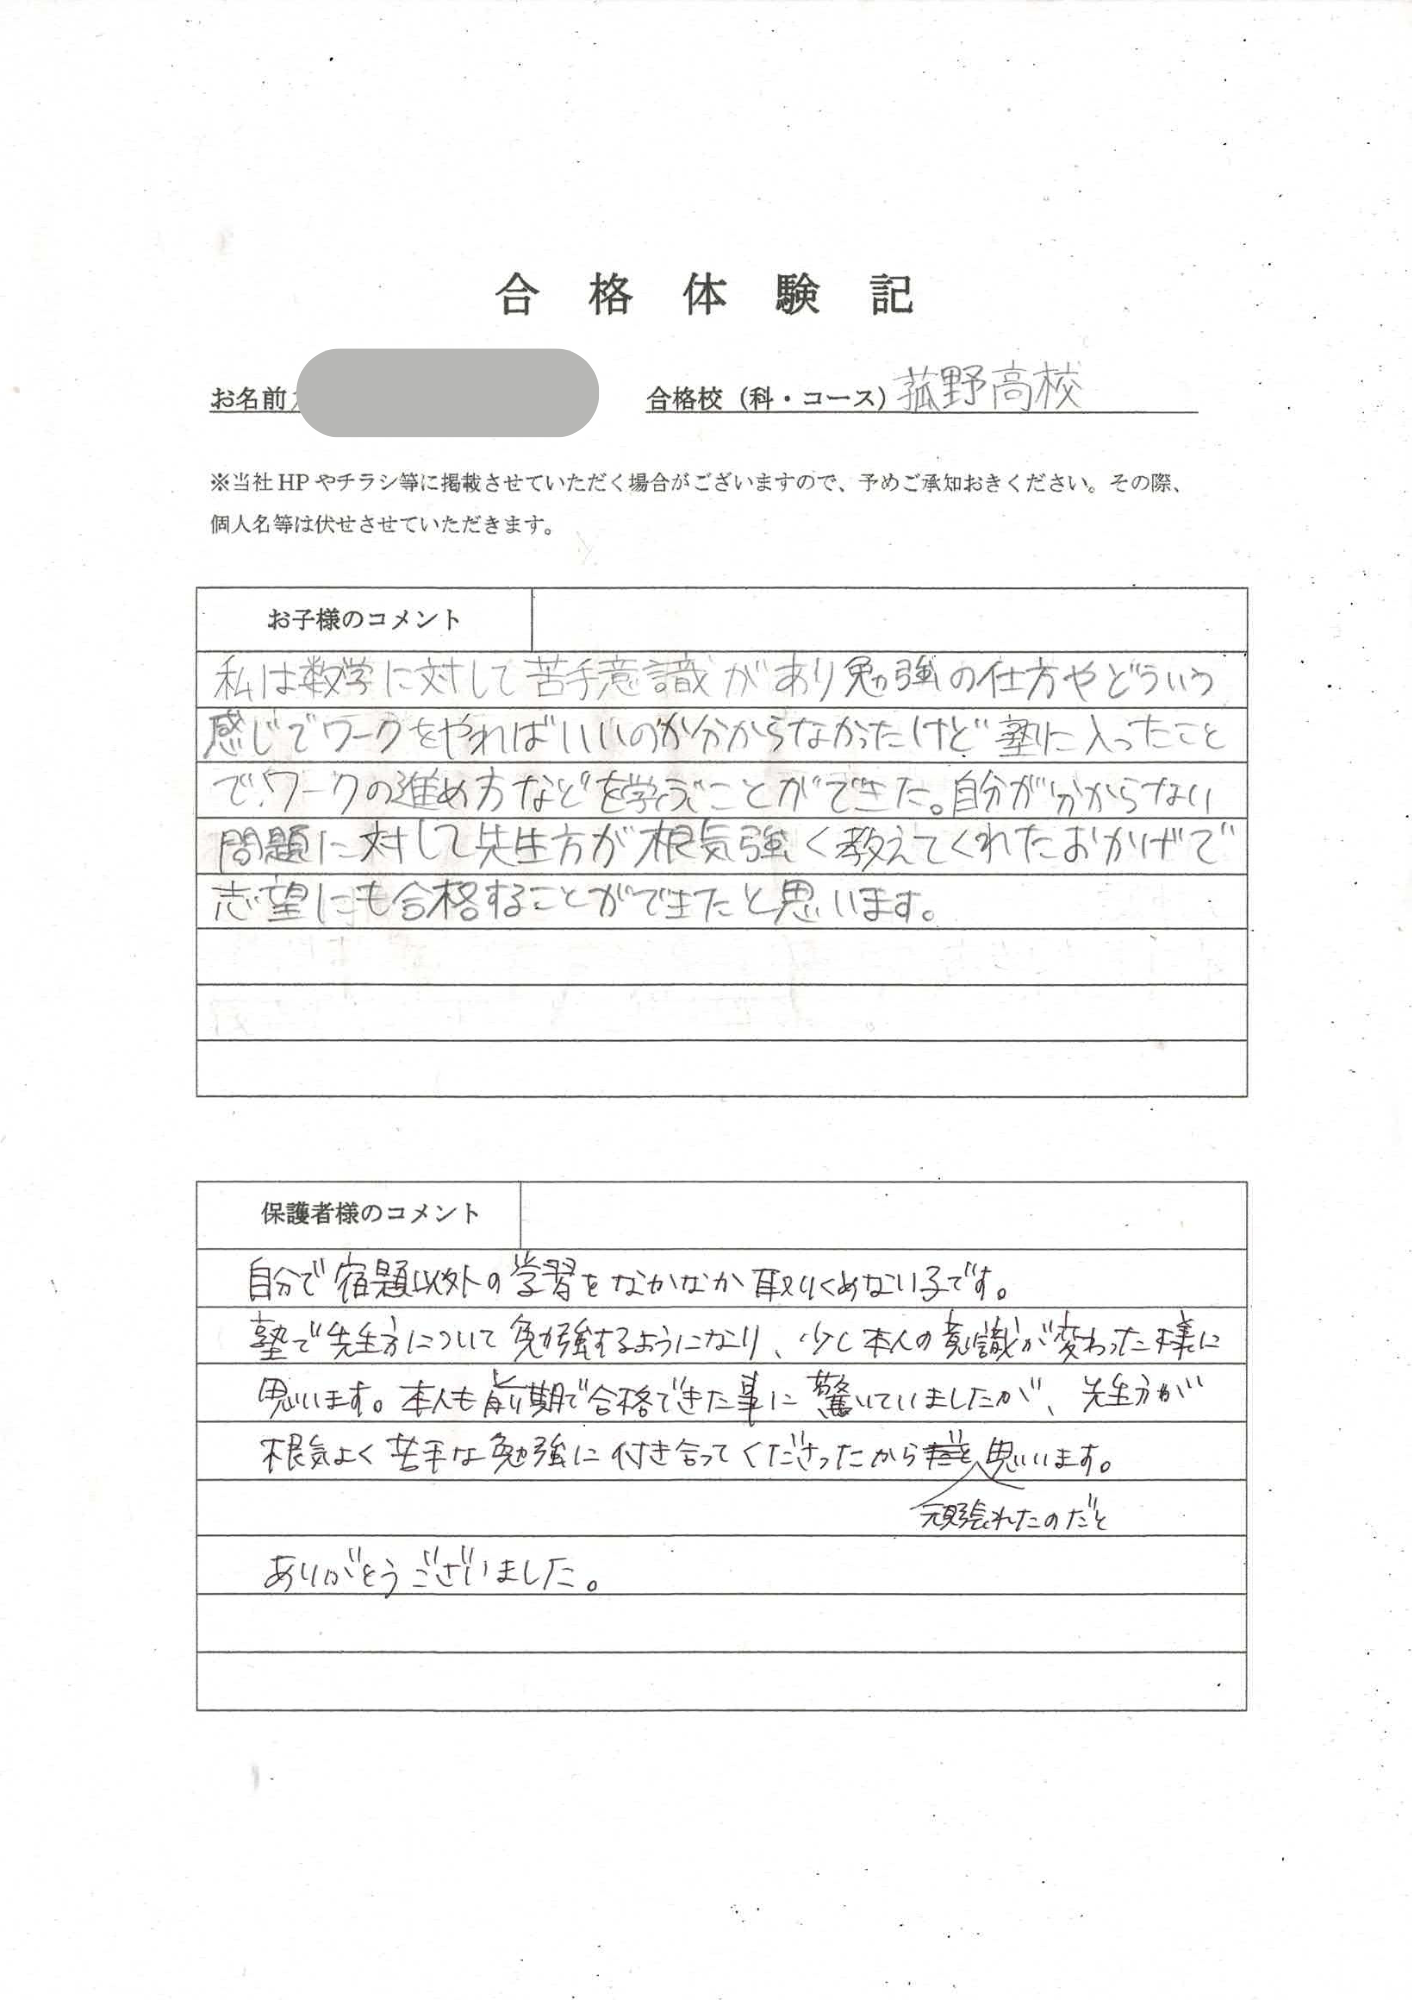 合格体験記
お名前
合格校（科・コース）菰野高校
※当社HPやチラシ等に掲載させていただく場合がございますので、予めご承知おきください。その際、
個人名等は伏せさせていただきます。
お子様のコメント
私は数学に対して苦手意識があり勉強の仕方やどういう
感じでワークをやればいいのか分からなかったけど塾に入ったこと
で、ワークの進め方などを学ぶことができた。自分が分からない
問題に対して先生方が根気強く教えてくれたおかげで
志望にも合格することができたと思います。
保護者様のコメント
自分で宿題以外の学習をなかなか取りくめない子です。
塾で先生方について勉強するようになり、少し本人の意識が変わった様に
思います。本人も前期で合格できた事に驚いていましたが、先生方が
根気よく苦手な勉強に付き合ってくださったから思います。
頑張れたのだと
ありがとうございました。